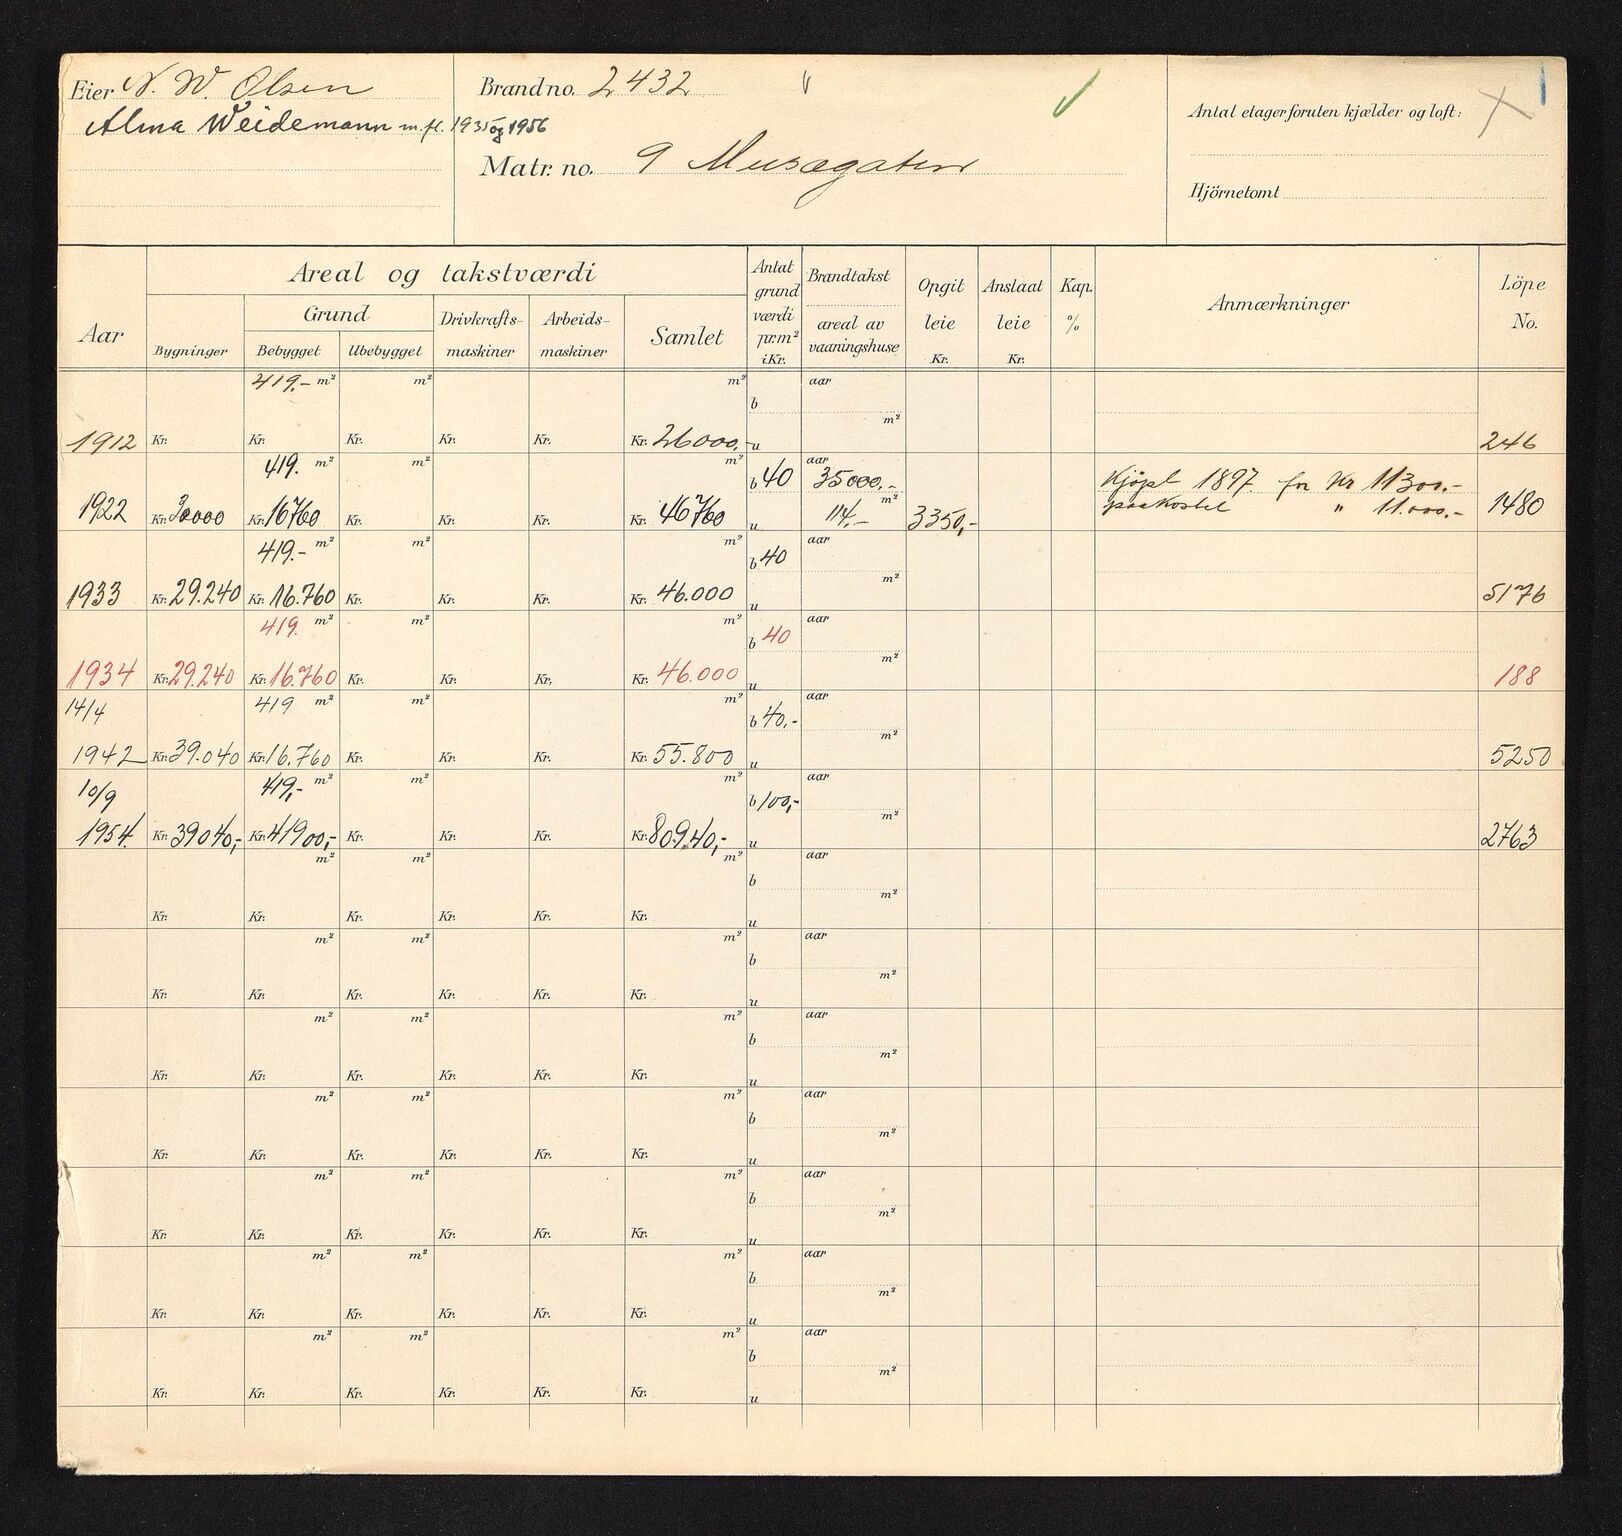 Eier N. W. Olsen
Alma Weidemann m. fl. 1935 og 1956
Brand no. 2432
Matr. no. 9 Musægaten
Antal etager foruten kjælder og loft:
Hjörnetomt
Aar
Areal og takstværdi
Bygninger
Grund
Bebygget Ubebygget
Drivkrafts-
maskiner
Arbeids-
maskiner
Samlet
Antat
grund
værdi
pr. m²
i Kr.
Brandtakst
areal av
vaaningshuse
Opgit
leie
Kr.
Anslaat
leie
Kr.
Kap.
%
Anmærkninger
Löpe
No.
419.- m² m² m² aar
b
m²
1912 Kr. Kr. Kr. Kr. Kr. Kr. 26000.- u 246
419. m² m² m² b 40 aar 35000.- Kjöpt 1897. for Kr 11300.-
1922 Kr. 30000 Kr. 16760 Kr. Kr. Kr. Kr. 46760 u m² 114.- 3350,- paakostet " 11.000.- 1480
419.- m² m² m² b 40 aar
m²
1933 Kr. 29.240 Kr. 16.760 Kr. Kr. Kr. Kr. 46.000 u 5176
419. m² m² m² b 40 aar
m²
1934 Kr. 29.240 Kr. 16.760 Kr. Kr. Kr. Kr. 46.000 u 188
14/4 419 m² m² m² b 40,- aar
m²
1942 Kr. 39.040 Kr. 16.760 Kr. Kr. Kr. Kr. 55.800 u 5250
10/9 419,- m² m² m² b 100,- aar
m²
1954. Kr. 39040,- Kr. 41900,- Kr. Kr. Kr. Kr. 80940,- u 2763
m² m² m² aar
b
m²
Kr. Kr. Kr. Kr. Kr. Kr. u
m² m² m² aar
b
m²
Kr. Kr. Kr. Kr. Kr. Kr. u
m² m² m² aar
b
m²
Kr. Kr. Kr. Kr. Kr. Kr. u
m² m² m² aar
b
m²
Kr. Kr. Kr. Kr. Kr. Kr. u
m² m² m² aar
b
m²
Kr. Kr. Kr. Kr. Kr. Kr. u
m² m² m² aar
b
m²
Kr. Kr. Kr. Kr. Kr. Kr. u
m² m² m² aar
b
m²
Kr. Kr. Kr. Kr. Kr. Kr. u